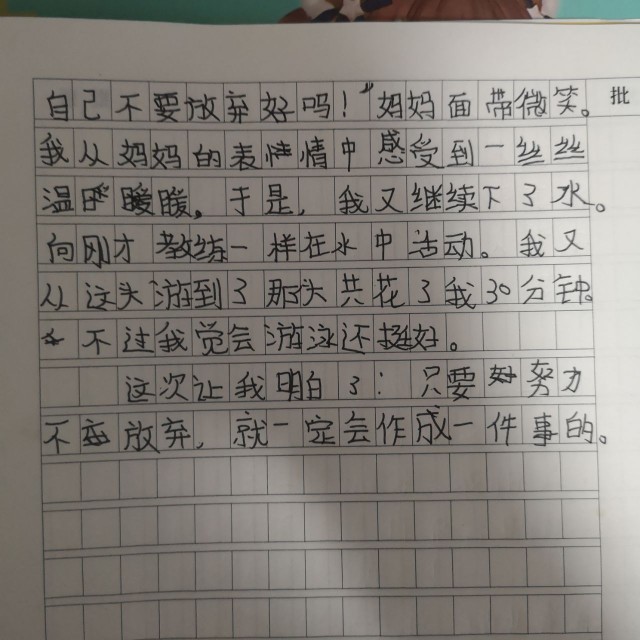 自己不要放弃好吗！”妈妈面带微笑。
批
我从妈妈的表情中感受到一丝丝
温暖暖，于是，我又继续下了水。
向刚才教练一样在水中活动。我又
从这头游到了那头共花了我30分钟。
不过我觉会游泳还挺好。
这次让我明白了：只要努力
不放弃，就一定会作成一件事的。